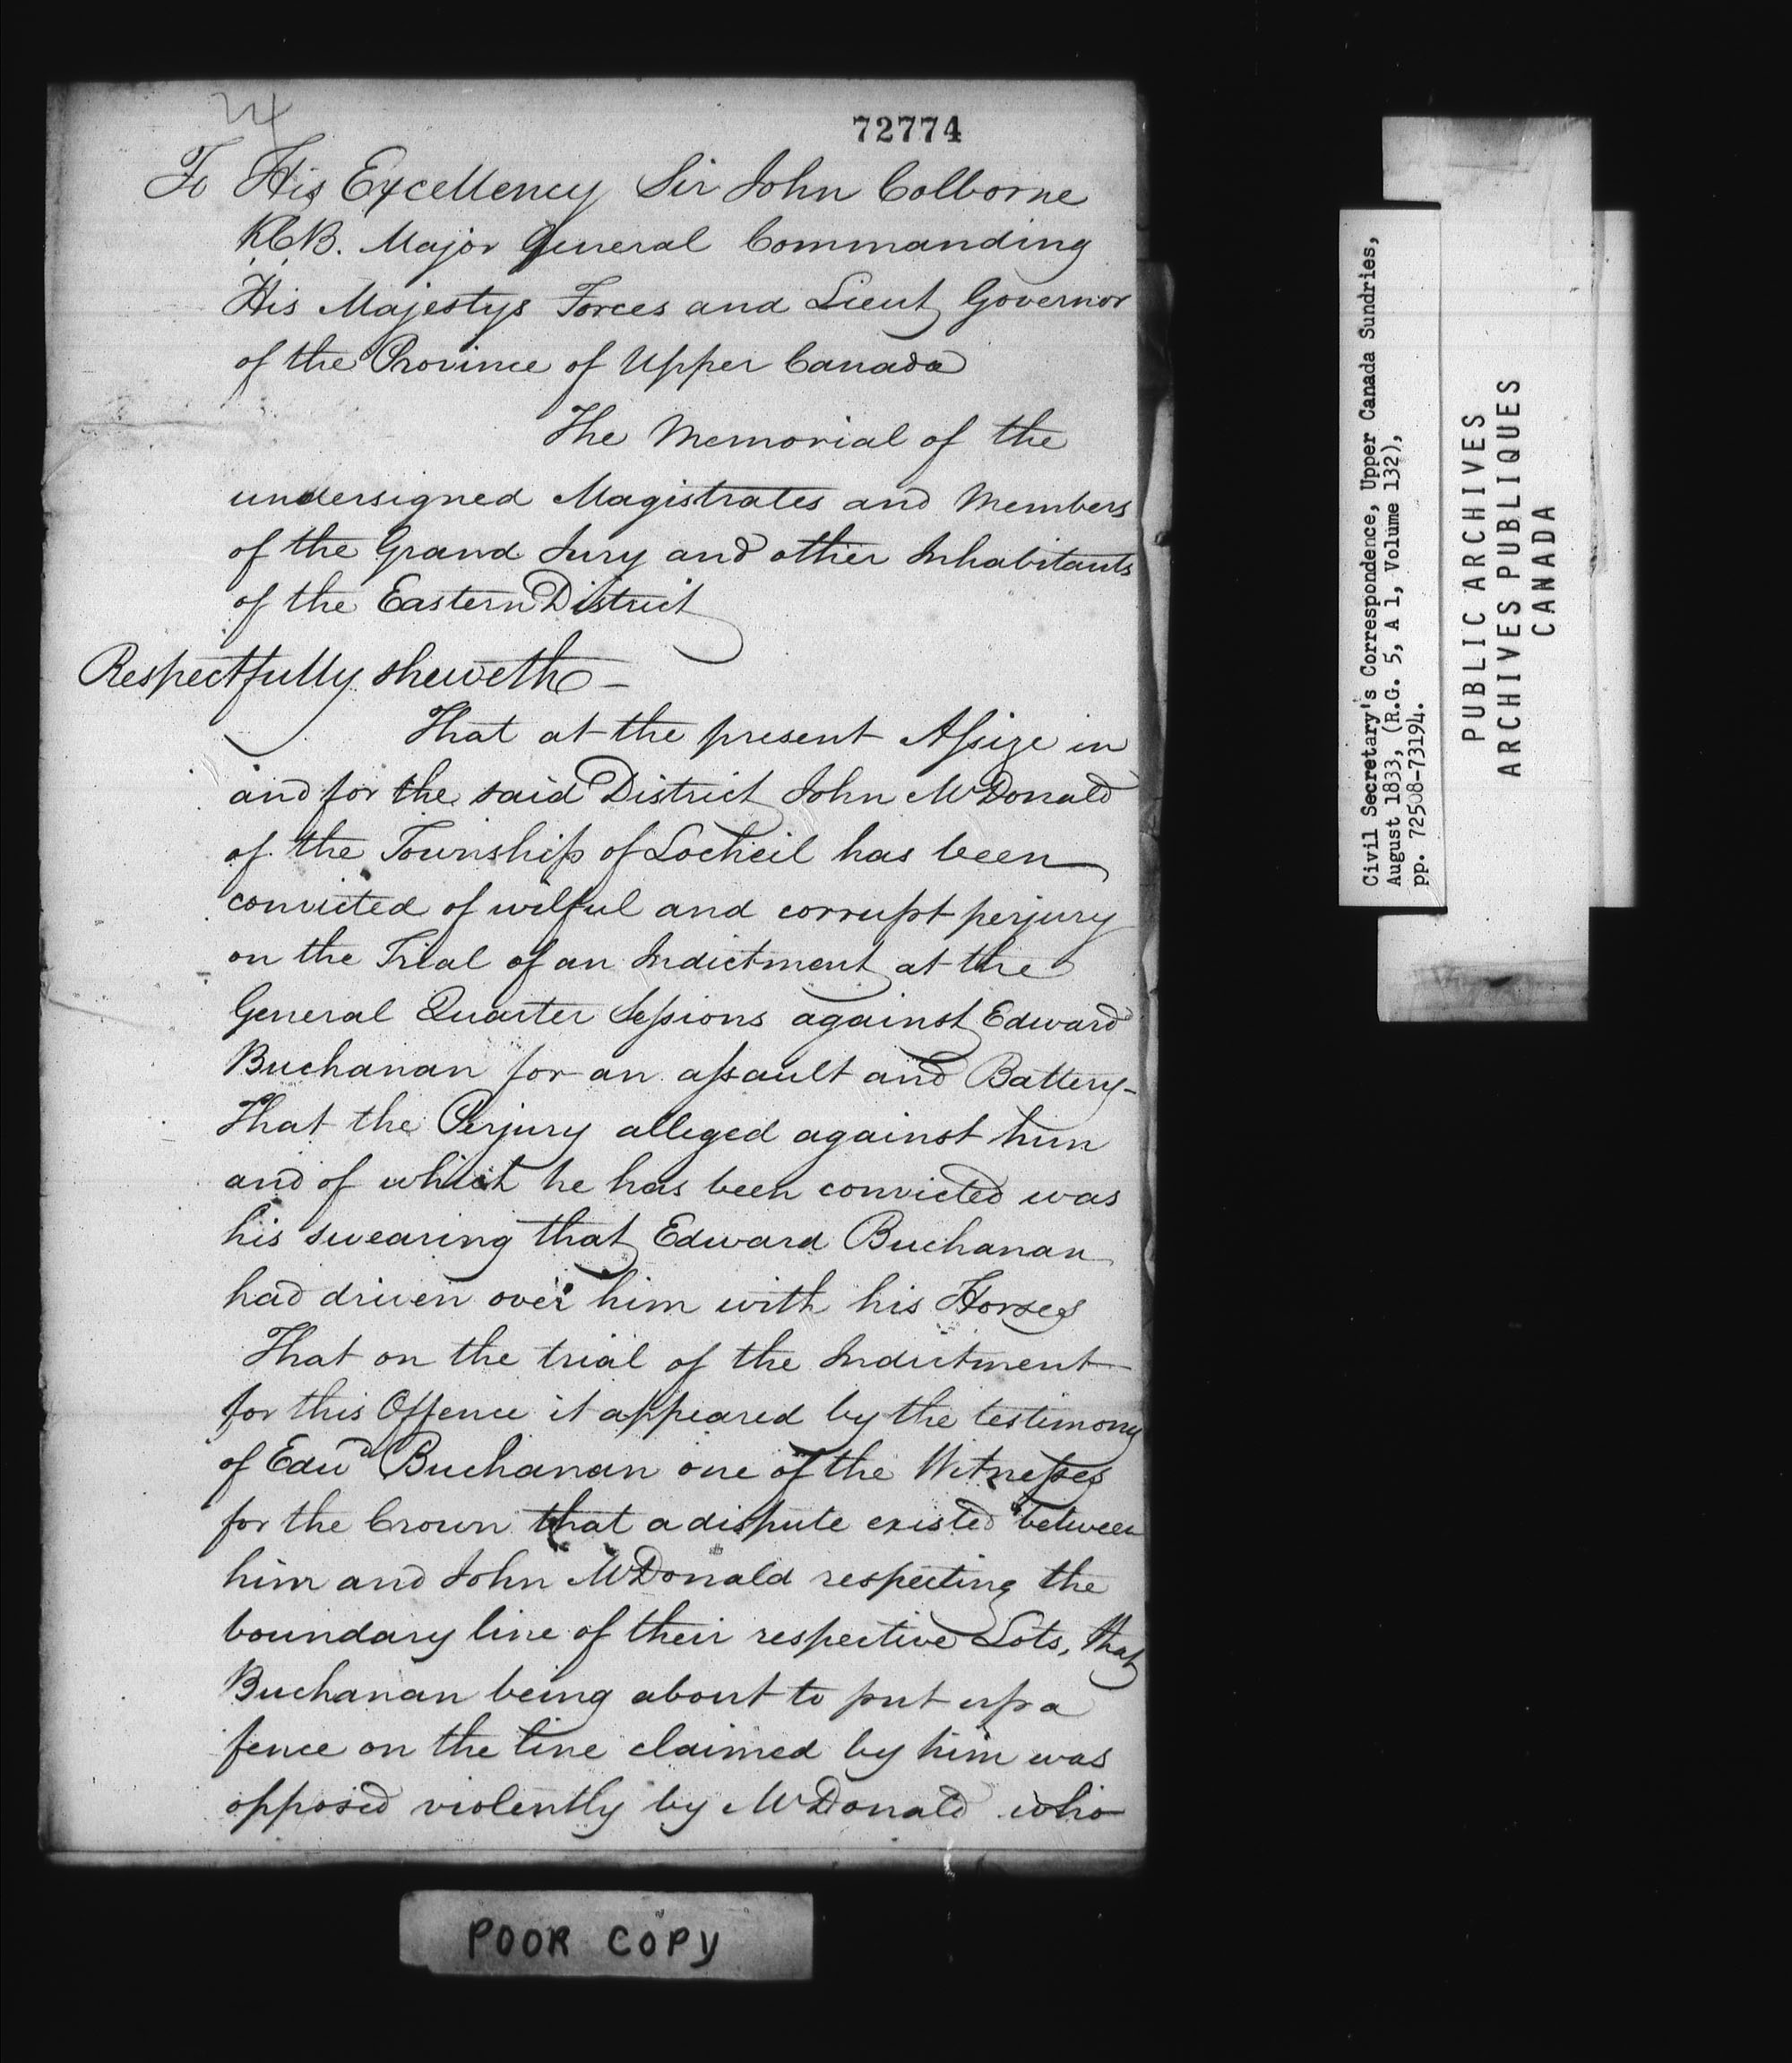 24
72774
To His Excellency Sir John Colborne
K.C.B. Major General Commanding
His Majestys Forces and Lieut Governor
of the Province of Upper Canada
The Memorial of the
undersigned Magistrates and Members
of the Grand Jury and other Inhabitants
of the Eastern District
Respectfully sheweth –
That at the present Assize in
and for the said District John McDonald
of the Township of Locheil has been
convicted of wilful and corrupt perjury
on the Trial of an Indictment at the
General Quarter Sessions against Edward
Buchanan for an assault and Battery –
That the Perjury alleged against him
and of which he has been convicted was
his swearing that Edward Buchanan
had driven over him with his Horses
That on the trial of the Indictment
for this Offence it appeared by the testimony
of Edwd Buchanan one of the Witnesses
for the Crown that a dispute existed between
him and John McDonald respecting the
boundary line of their respective Lots, that
Buchanan being about to put up a
fence on the line claimed by him was
opposed violently by McDonald who
POOR COPY
Civil Secretary's Correspondence, Upper Canada Sundries,
August 1833, (R.G. 5, A 1, Volume 132),
pp. 72508-73194.
PUBLIC ARCHIVES
ARCHIVES PUBLIQUES
CANADA